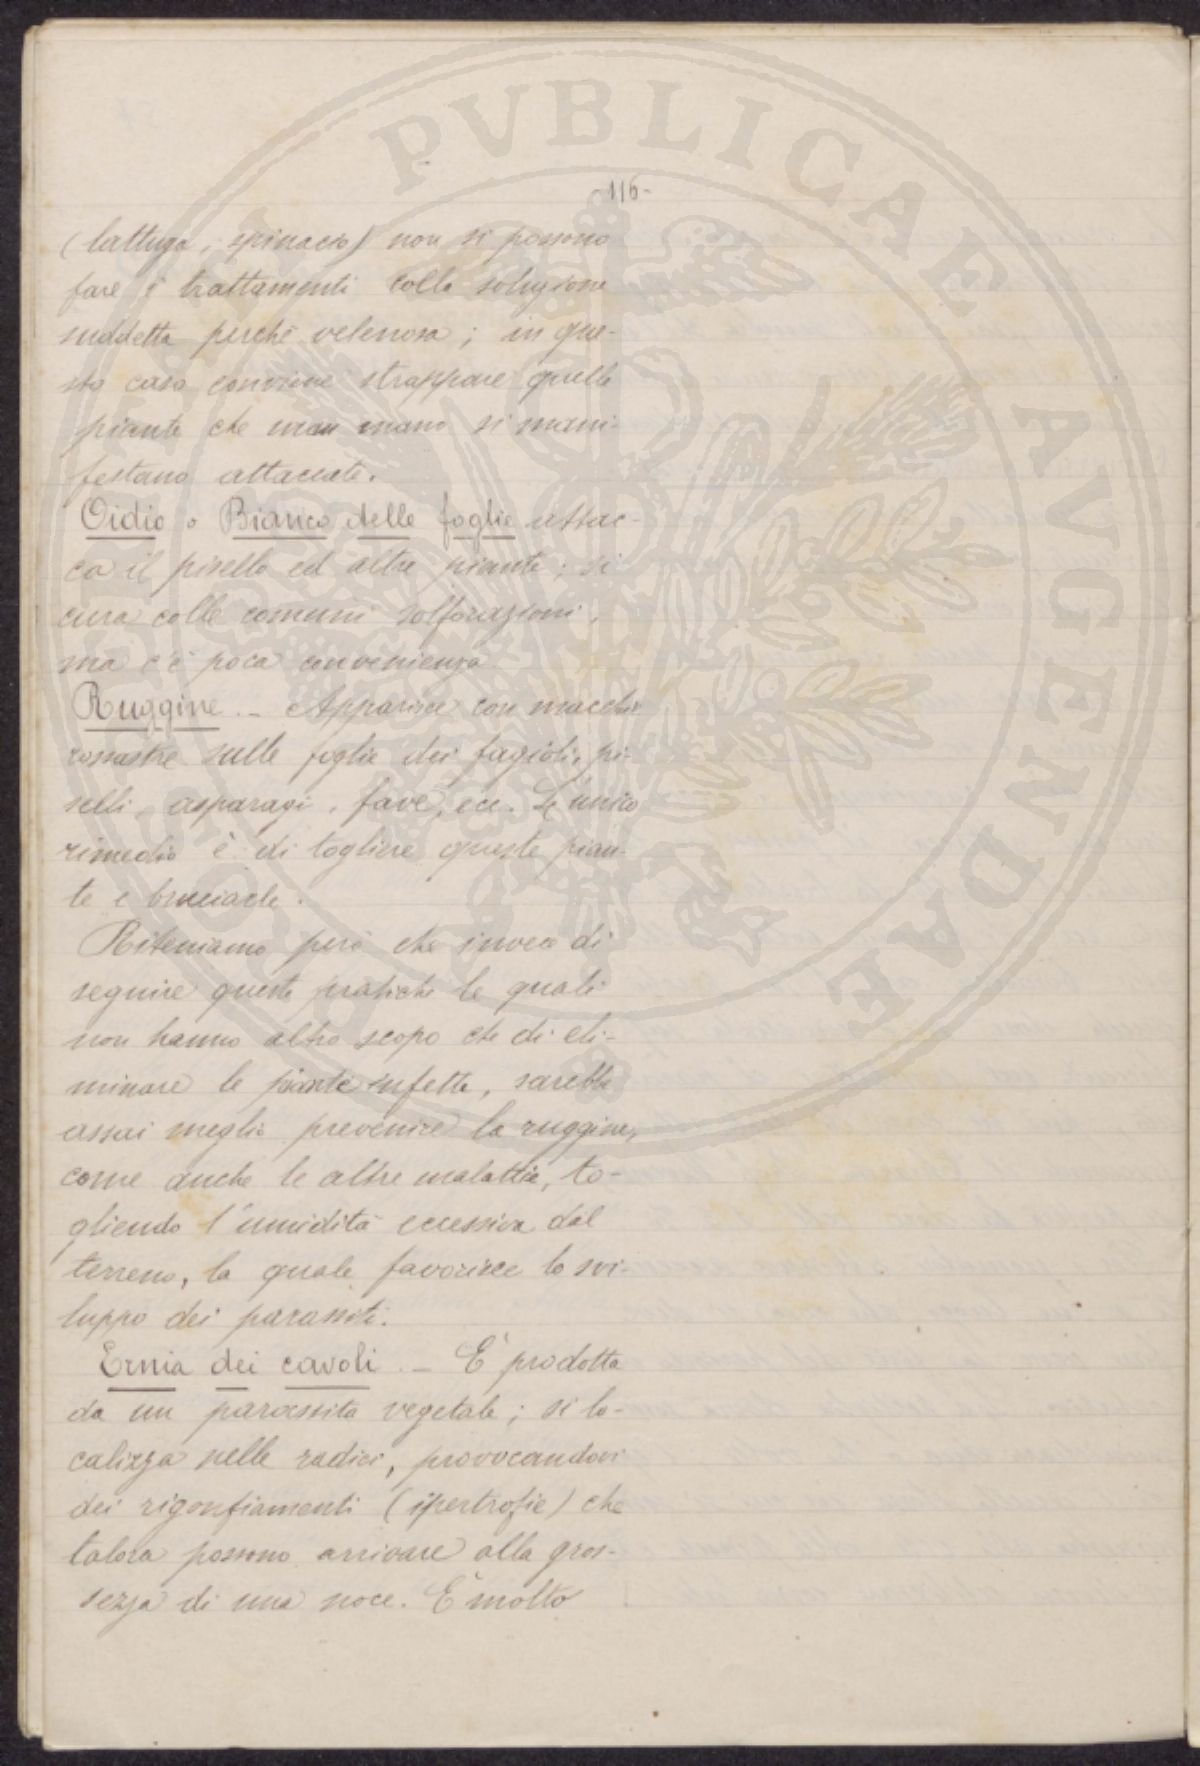 -116-
(lattuga, spinacio) non si possono
fare i trattamenti colla soluzione
suddetta perchè velenosa; in que-
sto caso conviene strappare quelle
piante che man mano si mani-
festano attaccate.
Oidio o Bianco delle foglie attac-
ca il pisello ed altre piante; si
cura colle comuni solforazioni,
ma c'è poca convenienza.
Ruggine. - Apparisce con macchie
rossastre sulle foglie dei fagioli, pi-
selli, asparagi, fave, ecc. L'unico
rimedio è di togliere queste pian-
te e bruciarle.
Riteniamo però che invece di
seguire queste pratiche le quali
non hanno altro scopo che di eli-
minare le piante infette, sarebbe
assai meglio prevenire la ruggine,
come anche le altre malattie, to-
gliendo l'umidità eccessiva dal
terreno, la quale favorisce lo svi-
luppo dei parassiti.
Ernia dei cavoli. - È prodotta
da un parassita vegetale; si lo-
calizza nelle radici, provocandovi
dei rigonfiamenti (ipertrofie) che
talora possono arrivare alla gros-
sezza di una noce. È molto
PVBLICAE AVGENDAE